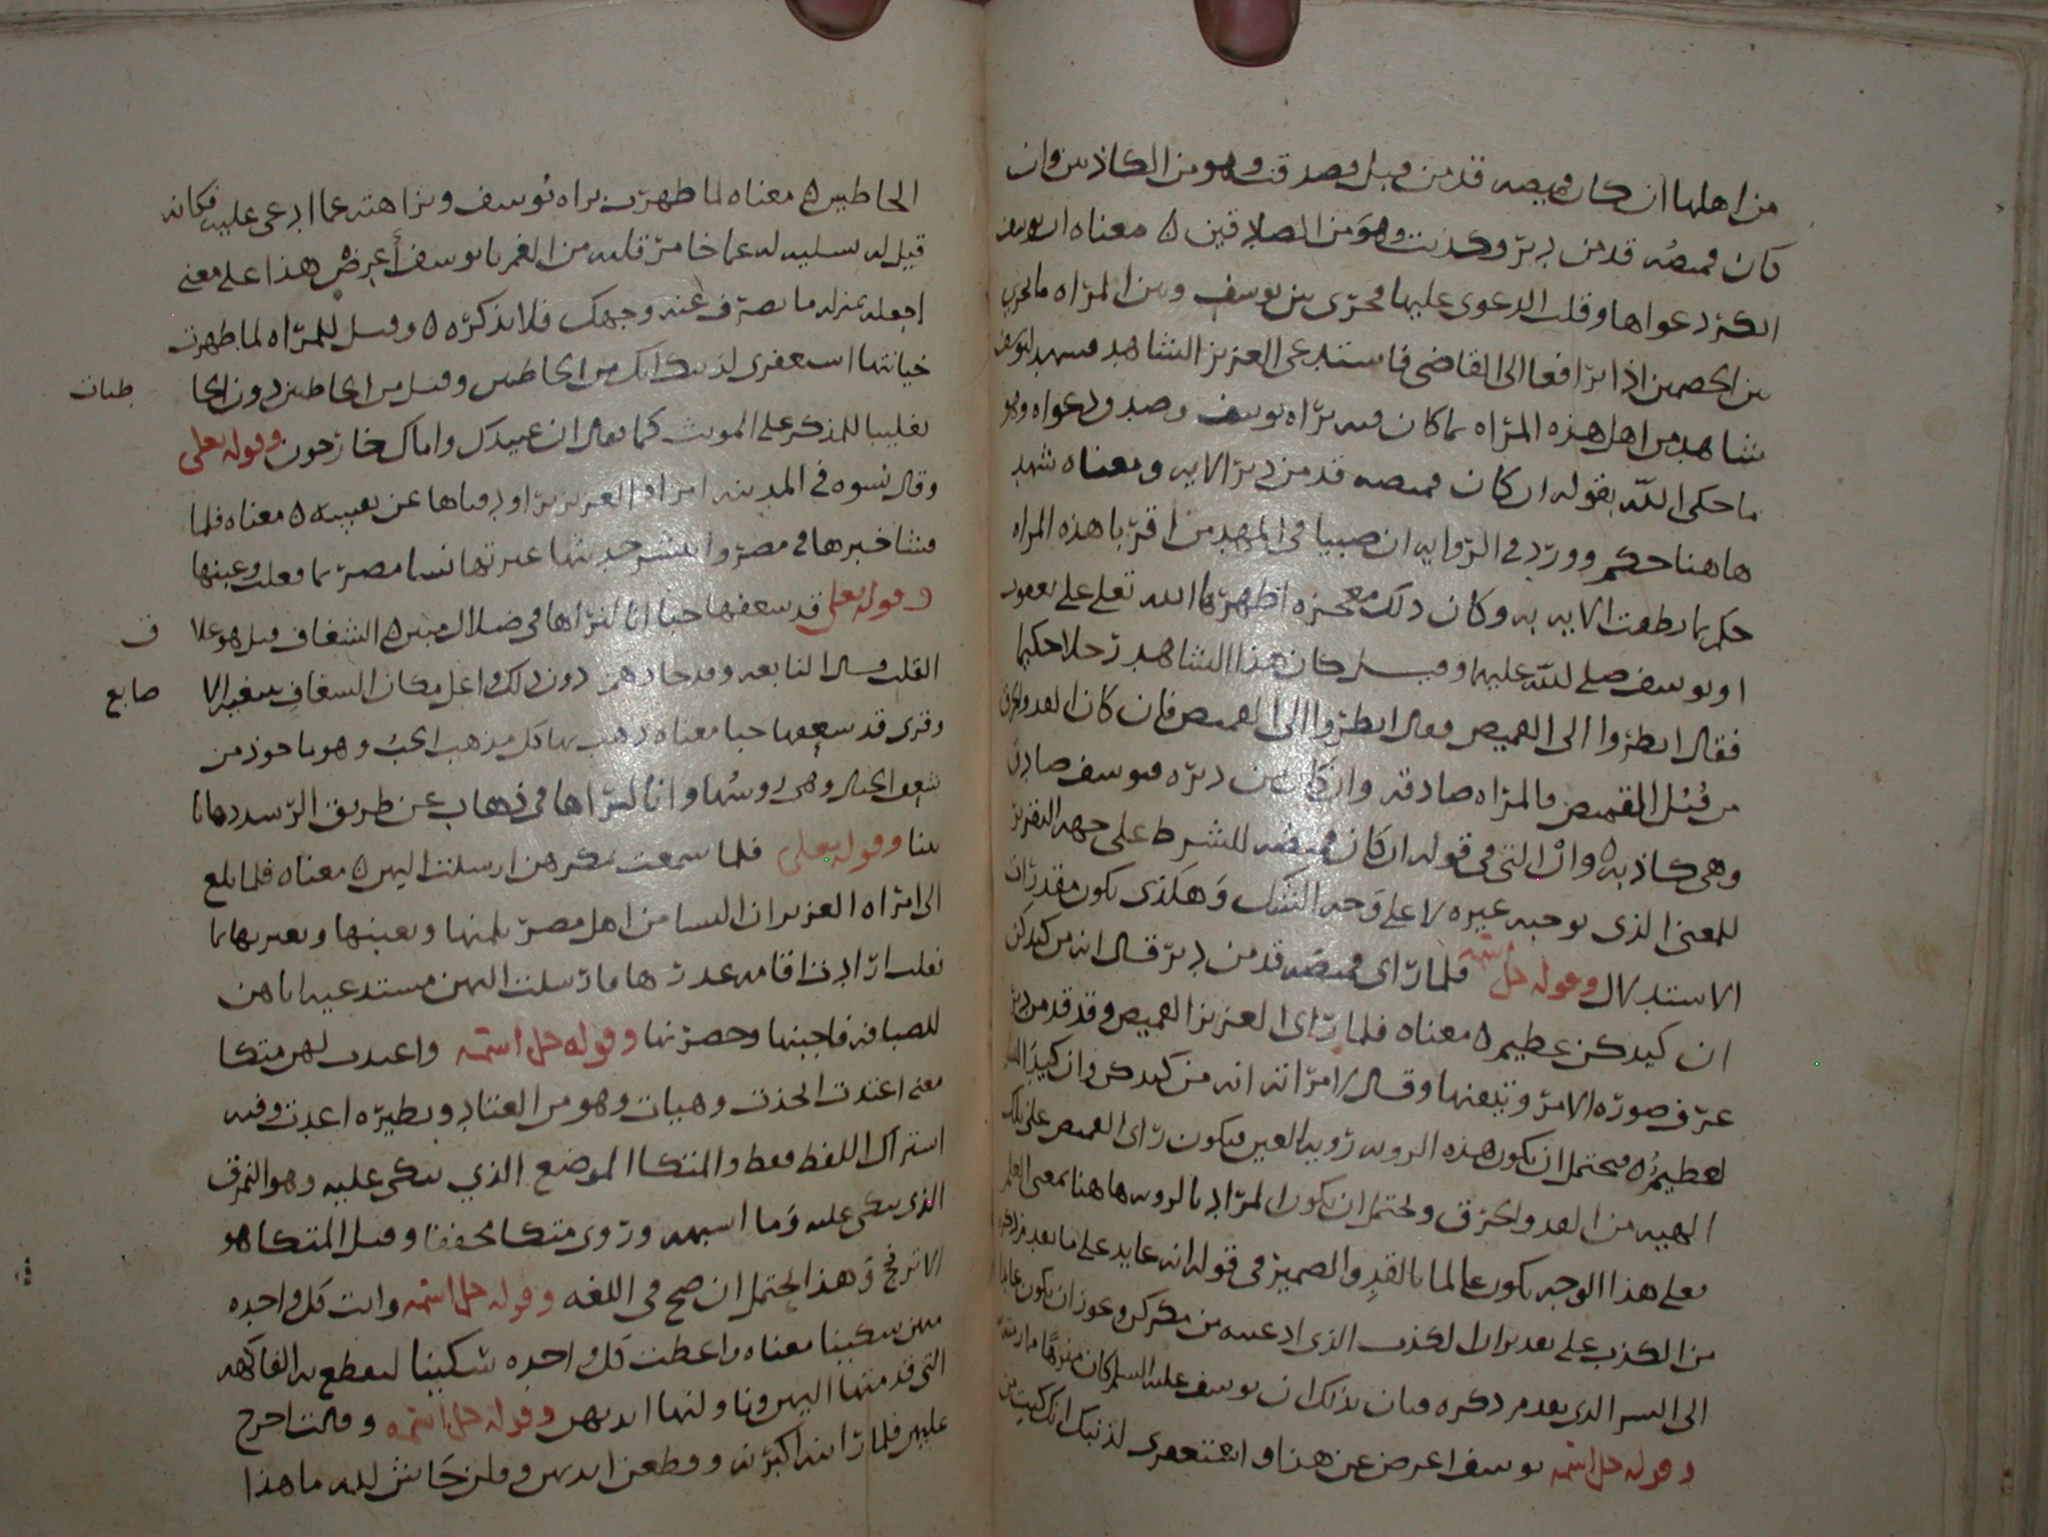 من اهلها ان كان قميصه قد من قبل فصدقت وهو من الكاذبين وان
كان قميصه قد من دبر وكذبت وهو من الصادقين ه معناه ان يوسف
انكر دعواها وقلب الدعوى عليها فجرى بين يوسف وبين المراه ما يجري
بين الخصمين اذا ترافعا الى القاضي فاستدعى العزيز الشاهد فشهد ليوسف
شاهد من اهل هذه المراه بما كان فيه براه يوسف وصدق دعواه وهو
ما حكى الله بقوله ان كان قميصه قد من دبر الايه ومعناه شهد
هاهنا حكم وورد في الروايه ان صبيا في المهد من اقربا هذه المراه
حكم بما نطقت الايه به وكان ذلك معجزه اظهرها الله تعلى على يعقوب
او يوسف صلى الله عليهما وقيل كان هذا الشاهد رجلا حكيما
فقال انظروا الى القميص فقال انظروا الى القميص فان كان القد والخرق
من قبل القميص فالمراه صادقه وان كان من دبره فيوسف صادق
وهي كاذبه ه وان التي في قوله ان كان قميصه للشرط على جهه التقرير
للمعنى الذي يوجبه غيره لا على وجه الشك وهكذى يكون مقدران
الاستدلال وقوله جل اسمه فلما راى قميصه قد من دبر قال انه من كيدكن
ان كيدكن عظيم ه معناه فلما راى العزيز القميص وقد قد من دبر
عرف صوره الامر وتيقنها وقال لامراته انه من كيدكن وان كيد النسا
لعظيم ه ويحتمل ان يكون هذه الرويه رويه العين فيكون راى القميص على تلك
الهيه من القد والخرق ويحتمل ان يكون المراد بالرويه هاهنا بمعنى العلم
فعلى هذا الوجه يكون عالما بالقد والضمير في قوله انه عايد على ما تقدم ذكره
من الكذب على تقدير ان الكذب الذي ادعيته من مكركن ويجوز ان يكون عايدا
الى السر الذي تقدم ذكره فبان بذلك ان يوسف عليه السلم كان منزها
وقوله جل اسمه يوسف اعرض عن هذا واستغفري لذنبك انك كنت من
الخاطين ه معناه لما ظهرت براه يوسف ونزاهته عما ادعى عليه فكانه
قيل له تسليه له عما خامر قلبه من الغم يا يوسف أعرض هذا على معنى
اجعله بمنزله ما تصرف عنه وجهك فلا تذكره ه وقيل للمراه لما ظهرت
خيانتها استغفري لذنبك انك من الخاطين وقيل من الخاطين دون الخا
طيات
تغليبا للمذكر على المونث كما يقال ان عبيدك واماك خارجون وقوله تعلى
وقال نسوه في المدينه امراه العزيز تراود فتاها عن نفسه ه معناه فلما
فشا خبرها في مصر وانتشر حديثها عيرتها نسا مصر بما فعلت وعبنها
وقوله تعلى قد شغفها حبا انا لنراها في ضلال مبين ه الشغاف قيل هو غلا
ف
القلب وقال النابغه وقد حال هم دون ذلك داخل مكان الشغاف تبتغيه الا
صابع
وقرى قد شعفها حبا معناه ذهب بها كل مذهب الحب وهو ماخوذ من
شعف الجبال وهي روسها وانا لنراها في ذهاب عن طريق الرشد ذهابا
بينا وقوله تعلى فلما سمعت بمكرهن ارسلت اليهن ه معناه فلما بلغ
الى امراه العزيز ان النسا من اهل مصر يلمنها ويعبنها ويعيرنها بما
فعلت ارادت اقامه عذرها فارسلت اليهن مستدعيه اياهن
للضيافه فاجبنها وحضرنها وقوله جل اسمه واعتدت لهن متكا
معنى اعتدت اتخذت وهيات وهو من العتاد ونظيره اعدت وفيه
اشتراك اللفظ فقط والمتكا الموضع الذي يتكى عليه وهو النمرق
الذي يتكى عليه وما اشبهه وروى متكا مخففا وقيل المتكا هو
الاترج وهذا يحتمل ان صح في اللغه وقوله جل اسمه واتت كل واحده
منهن سكينا معناه واعطت كل واحده سكينا ليقطع به الفاكهه
التي قدمتها اليهن وناولتها ايديهن وقوله جل اسمه وقالت اخرج
عليهن فلما راينه اكبرنه وقطعن ايديهن وقلن حاش لله ما هذا